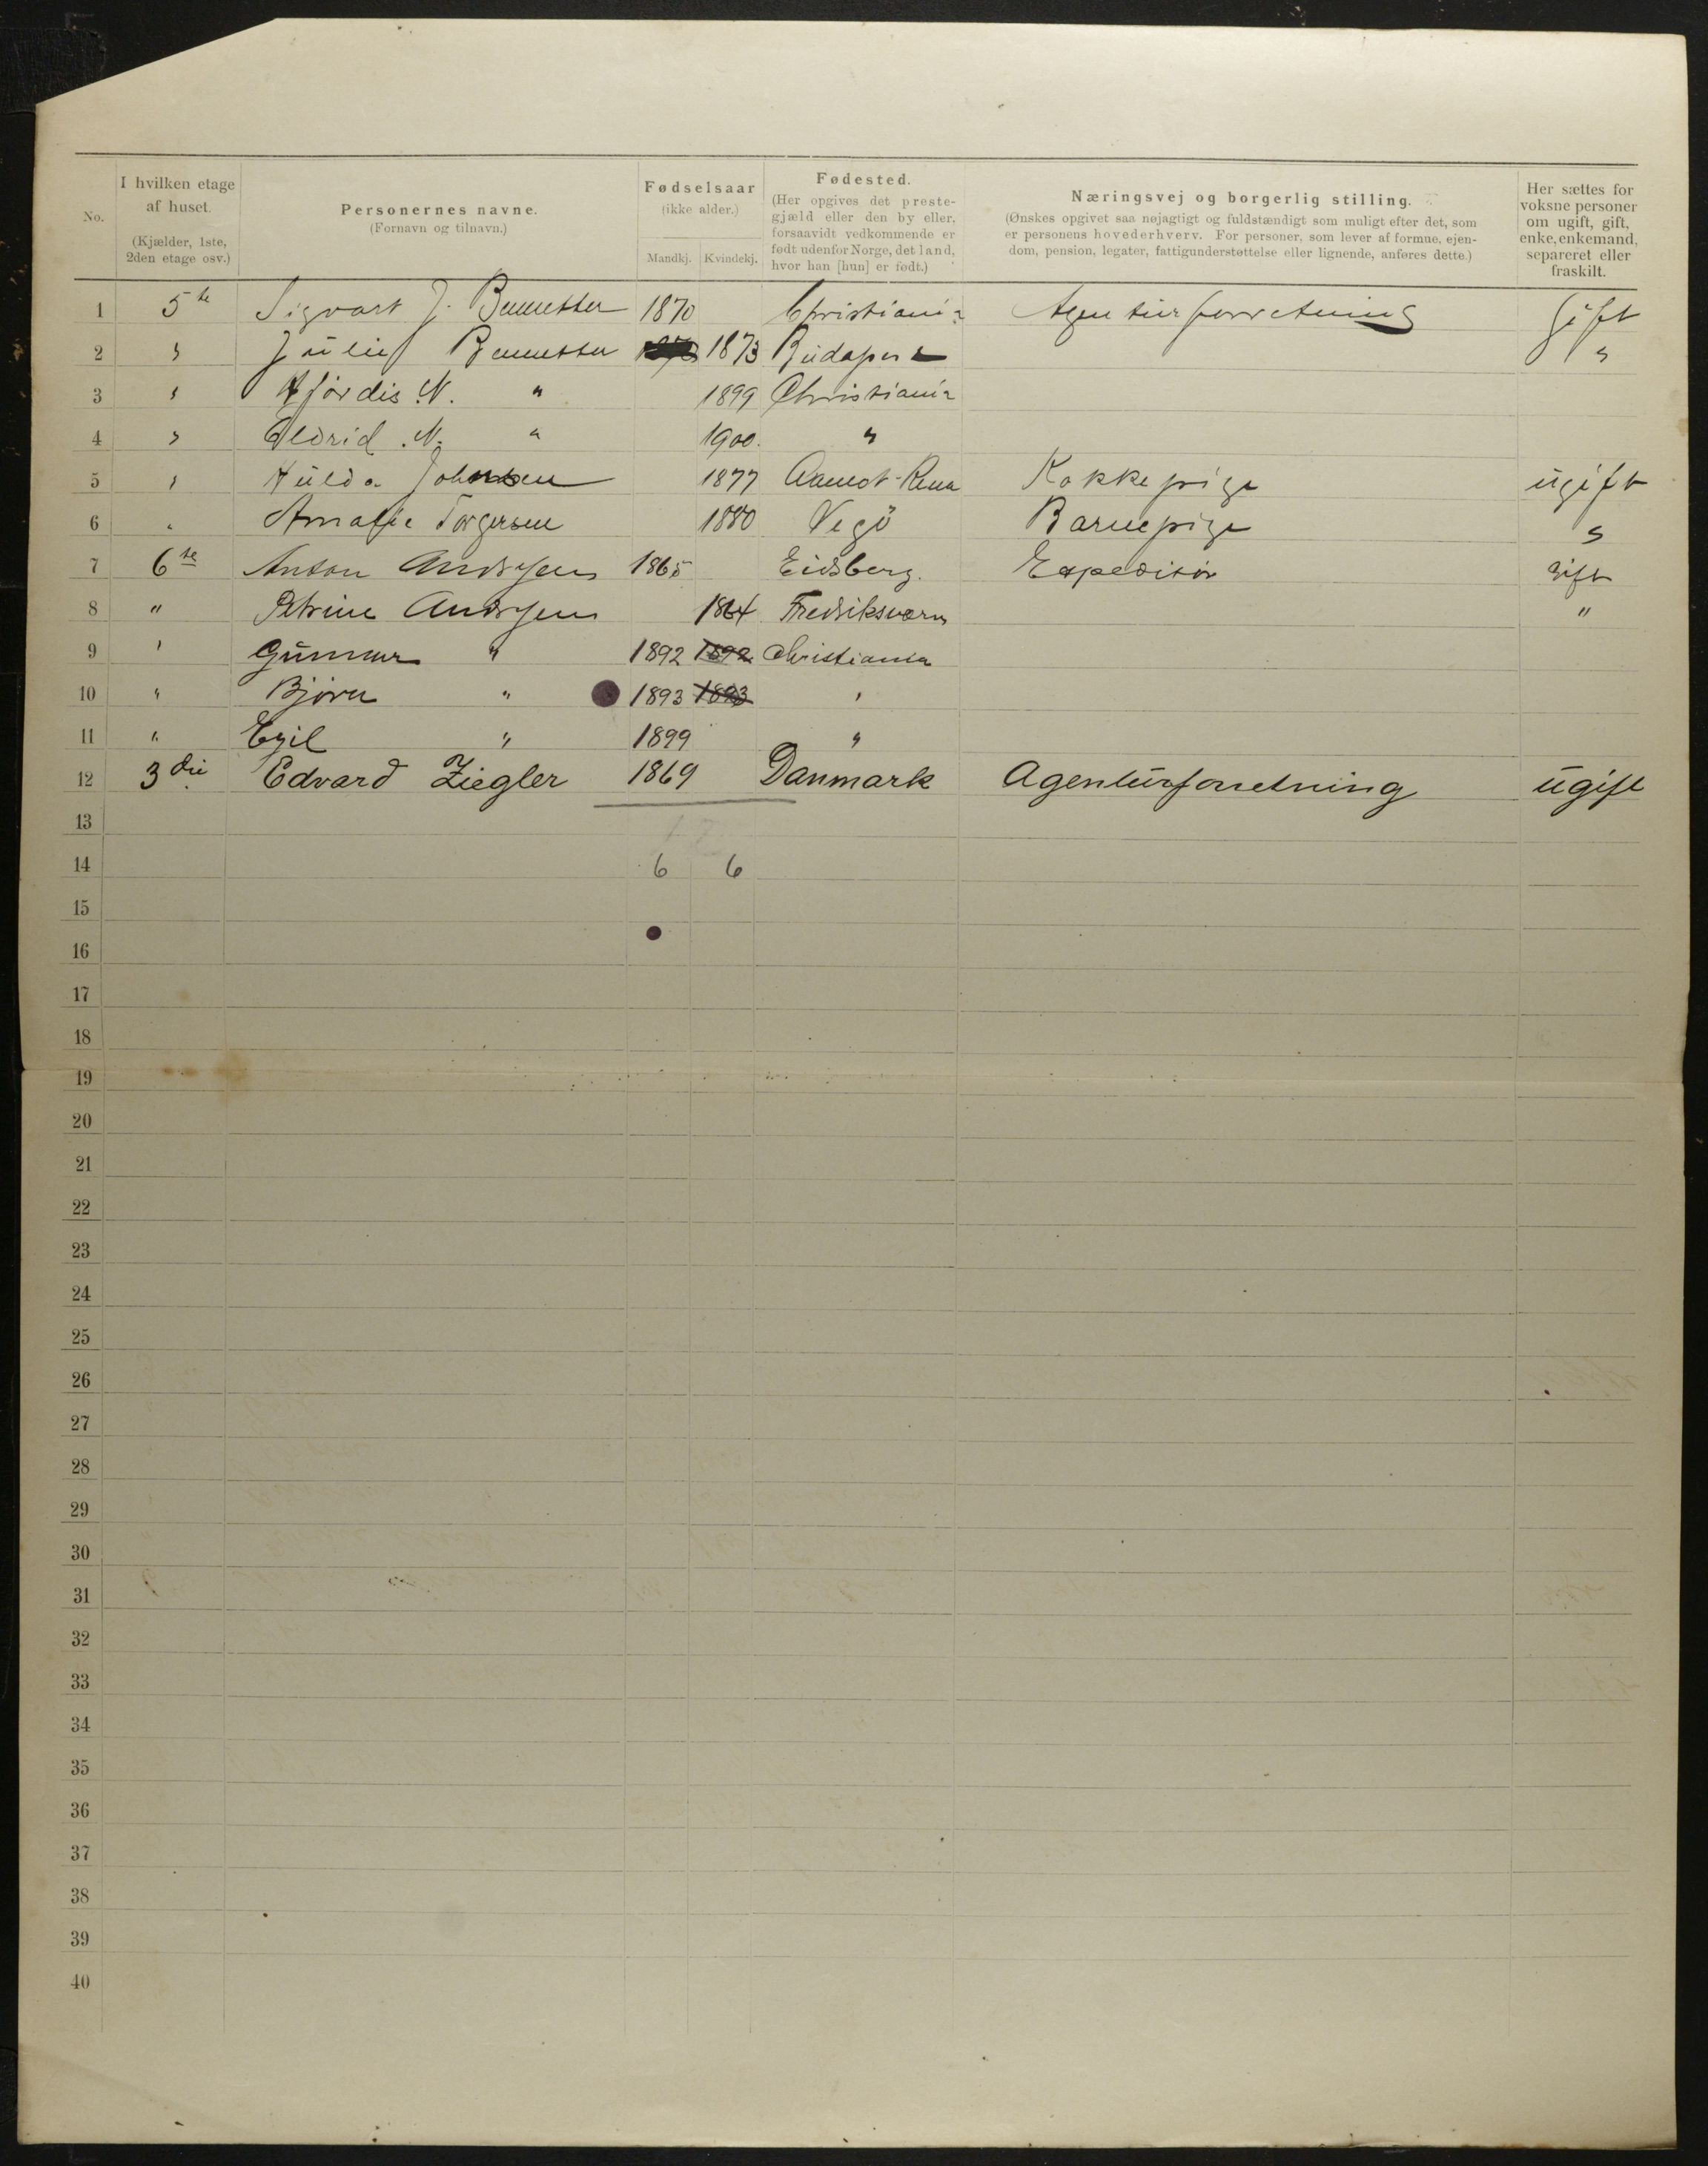 No.
I hvilken etage af huset. (Kjælder, 1ste, 2den etage osv.)
Personernes navne. (Fornavn og tilnavn.)
Fødselsaar (ikke alder.) Mandkj. Kvindekj.
Fødested. (Her opgives det prestegjæld eller den by eller, forsaavidt vedkommende er født udenfor Norge, det land, hvor han [hun] er født.)
Næringsvej og borgerlig stilling. (Ønskes opgivet saa nøjagtigt og fuldstændigt som muligt efter det, som er personens hovederhverv. For personer, som lever af formue, ejendom, pension, legater, fattigunderstøttelse eller lignende, anføres dette.)
Her sættes for voksne personer om ugift, gift, enke, enkemand, separeret eller fraskilt.
1 5te Sigvart J. 1870 Christiania Agenturforretning gift
2 " 1873 Budapest "
3 " Hjørdis N. " 1899 Christiania
4 " Eldrid N. " 1900. "
5 " Hulda Johnsen 1877 Aamot-Rena Kokkepige ugift
6 " Amalie Torgersen 1880 Vegø Barnepige "
7 6te Anton Andersen 1865 Eidsberg. Expeditør gift
8 " Petrine Andersen 1864 Fredriksværn "
9 " Gunnar " 1892 1892 Christiania
10 " Bjørn " 1893 1893 "
11 " Egil " 1899 "
12 3die Edvard Ziegler 1869 Danmark Agenturforretning ugift
13
14 6 6
15
16
17
18
19
20
21
22
23
24
25
26
27
28
29
30
31
32
33
34
35
36
37
38
39
40